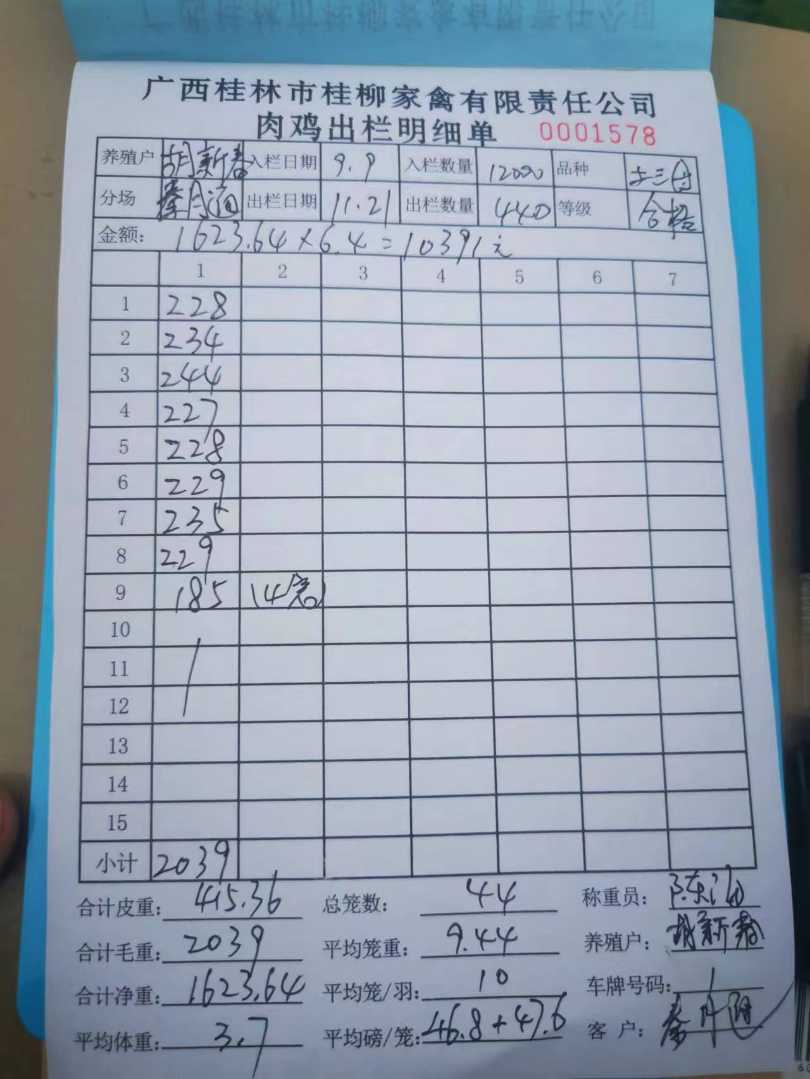 广西桂林市桂柳家禽有限责任公司
肉鸡出栏明细单 0001578
养殖户 胡新春 入栏日期 9.9 入栏数量 12000 品种
分场 出栏日期 11.21 出栏数量 440 等级 合格
金额: 1623.64×6.4=10391元
1 2 3 4 5 6 7
1 228
2 234
3 244
4 227
5 228
6 229
7 235
8 229
9 185 14笼
10
11
12
13
14
15
小计 2039
合计皮重: 415.36 总笼数: 44 称重员:
合计毛重: 2039 平均笼重: 9.44 养殖户: 胡新春
合计净重: 1623.64 平均笼/羽: 10 车牌号码:
平均体重: 3.7 平均磅/笼: 46.8+47.6 客户: